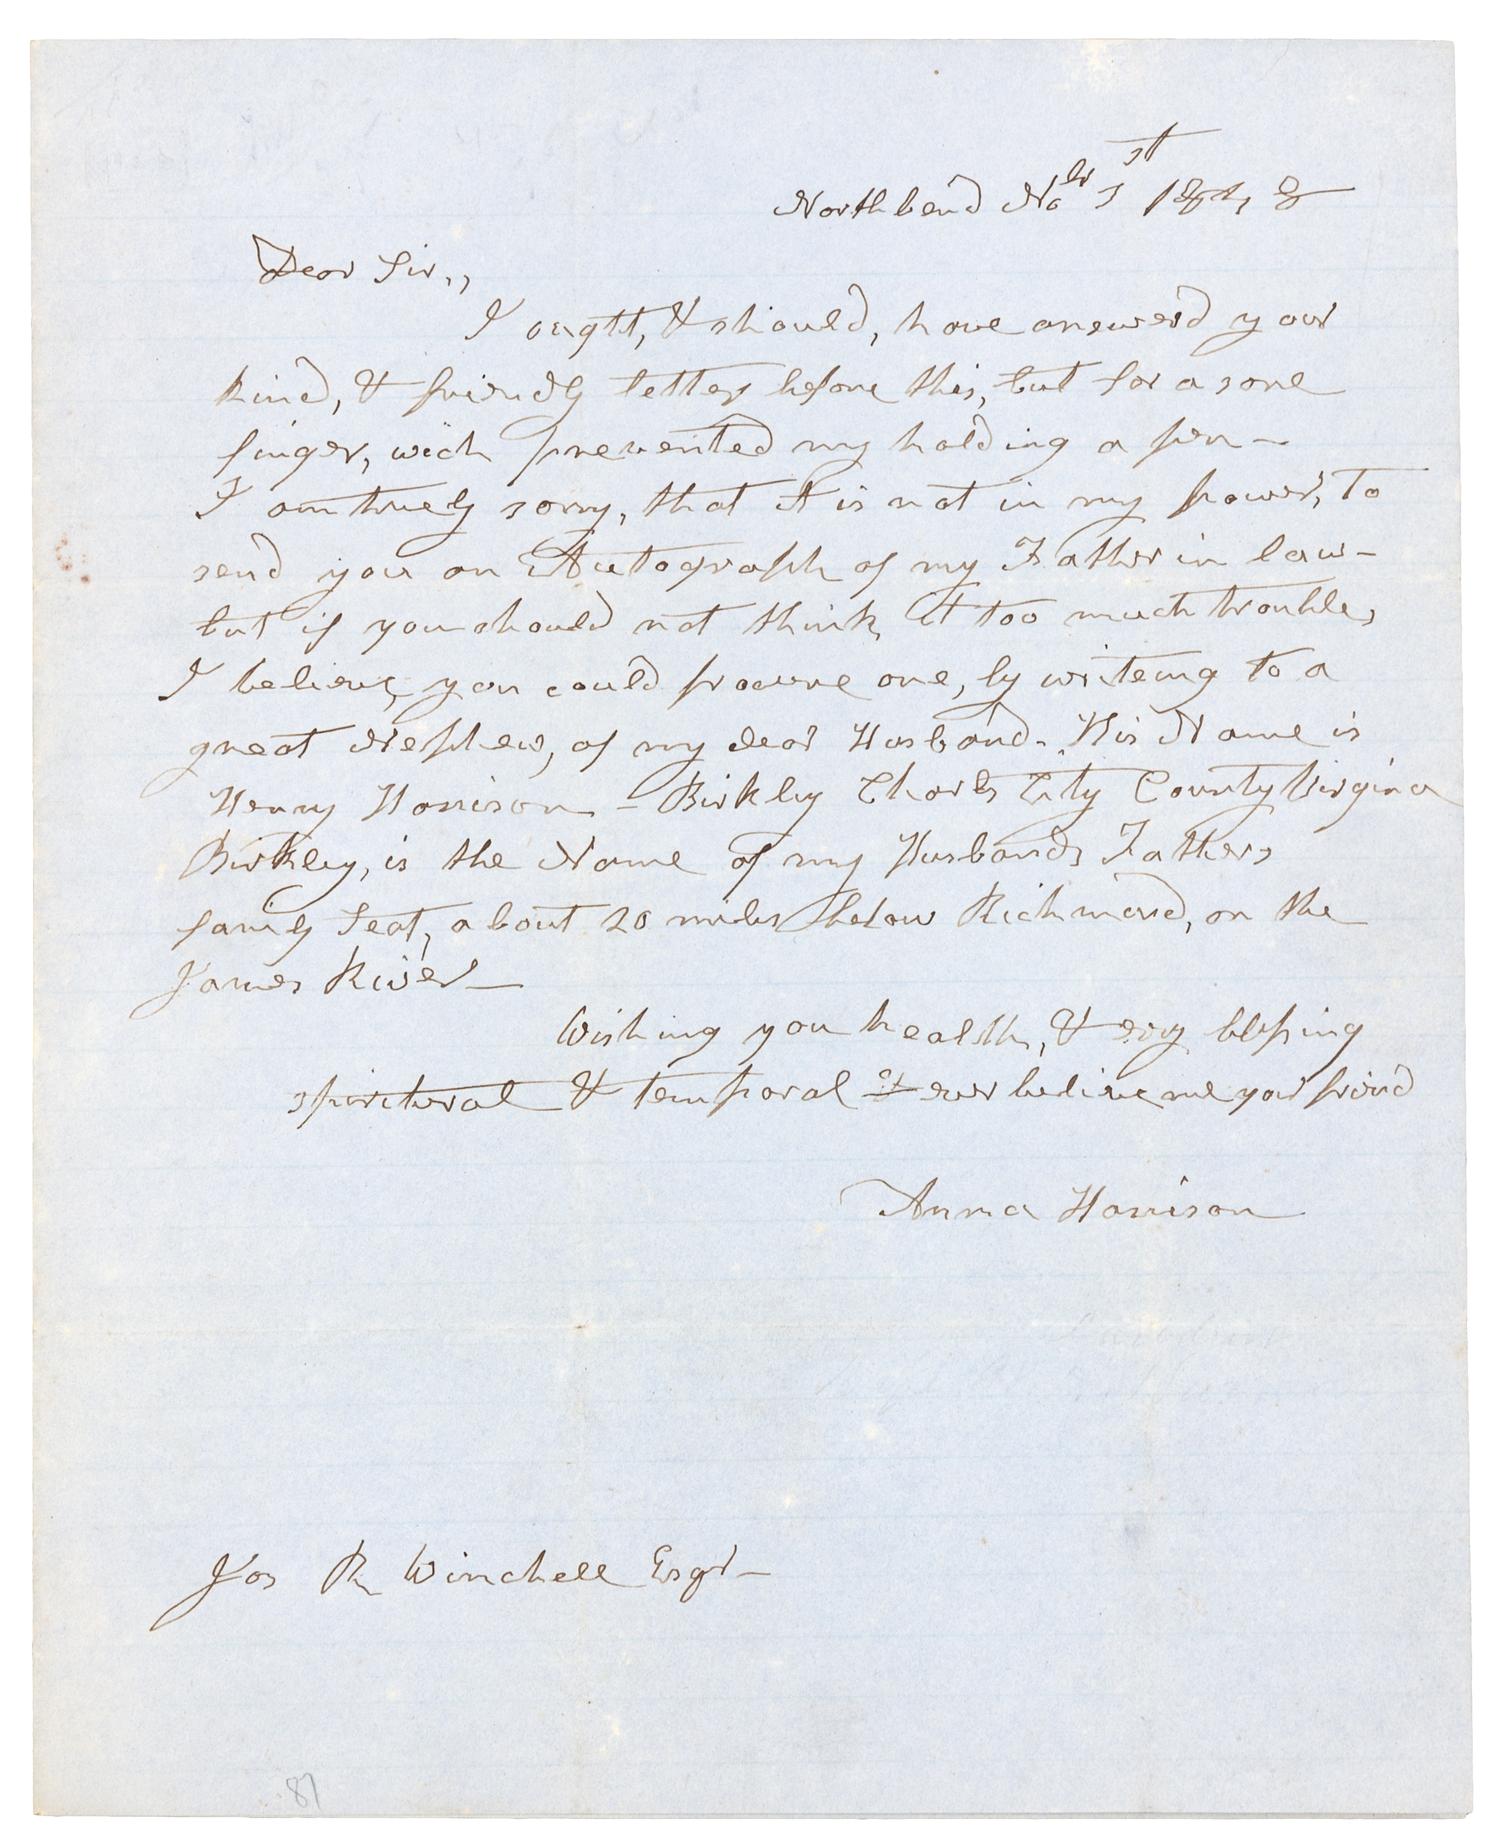 Northbend No br 1 st 1848
Dear Sir,,
I ougtt, & should, have answerd your
kind, & friendly letter before this, but for a sore
finger, wich prevented my holding a pen -
I am truely sorry, that it is not in my power, to
send you an Autograph of my Father in law -
but if you should not think it too much trouble,
I believe, you could procure one, by writeing to a
great Nephew, of my dear Husband - His Name is
Henry Harrison - Birkley Charls City County Virgina
Birkley, is the Name of my Husbands Fathers
family Seat, about 20 miles below Richmond, on the
James River -
Wishing you health, & evry blessing
spiritural & temporal & ever believe me your frind
Anna Harrison
Jos R Winchell Esqr -
87